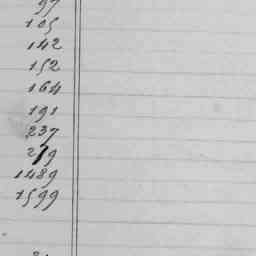 97
105
142
152
164
191
237
279
1489
1599